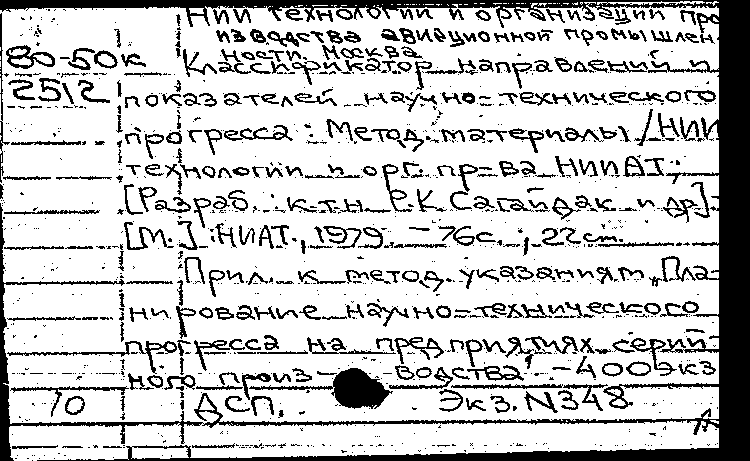 НИИ технологии и организации про
изводства авиационной промышлен-
ности. Москва
80-50к Классификатор направлений и
2512 показателей научно-технического
прогресса: Метод. материалы / НИИ
технологии и орг. пр-ва НИИАТ;
[Разраб.: к.т.н. Р.К. Сагайдак и др.]-
[М.]: НИАТ., 1979. - 76с.; 22см.
Прил. к метод. указаниям „Пла-
нирование научно-технического
прогресса на предприятиях серий-
ного произ- водства". -400экз
10 ДСП. Экз. N348.